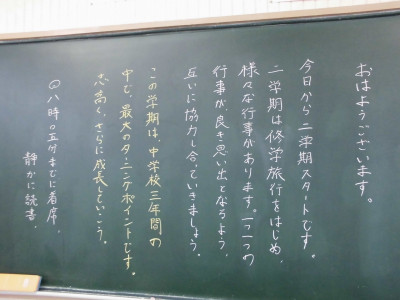 おはようございます。
今日から二学期スタートです。
二学期は修学旅行をはじめ、
様々な行事があります。一つ一つの
行事が、良き思い出となるよう、
互いに協力し合っていきましょう。
この学期は、中学校三年間の
中で、最大のターニングポイントです。
志高く、さらに成長していこう。
八時〇五分までに着席、
静かに読書。